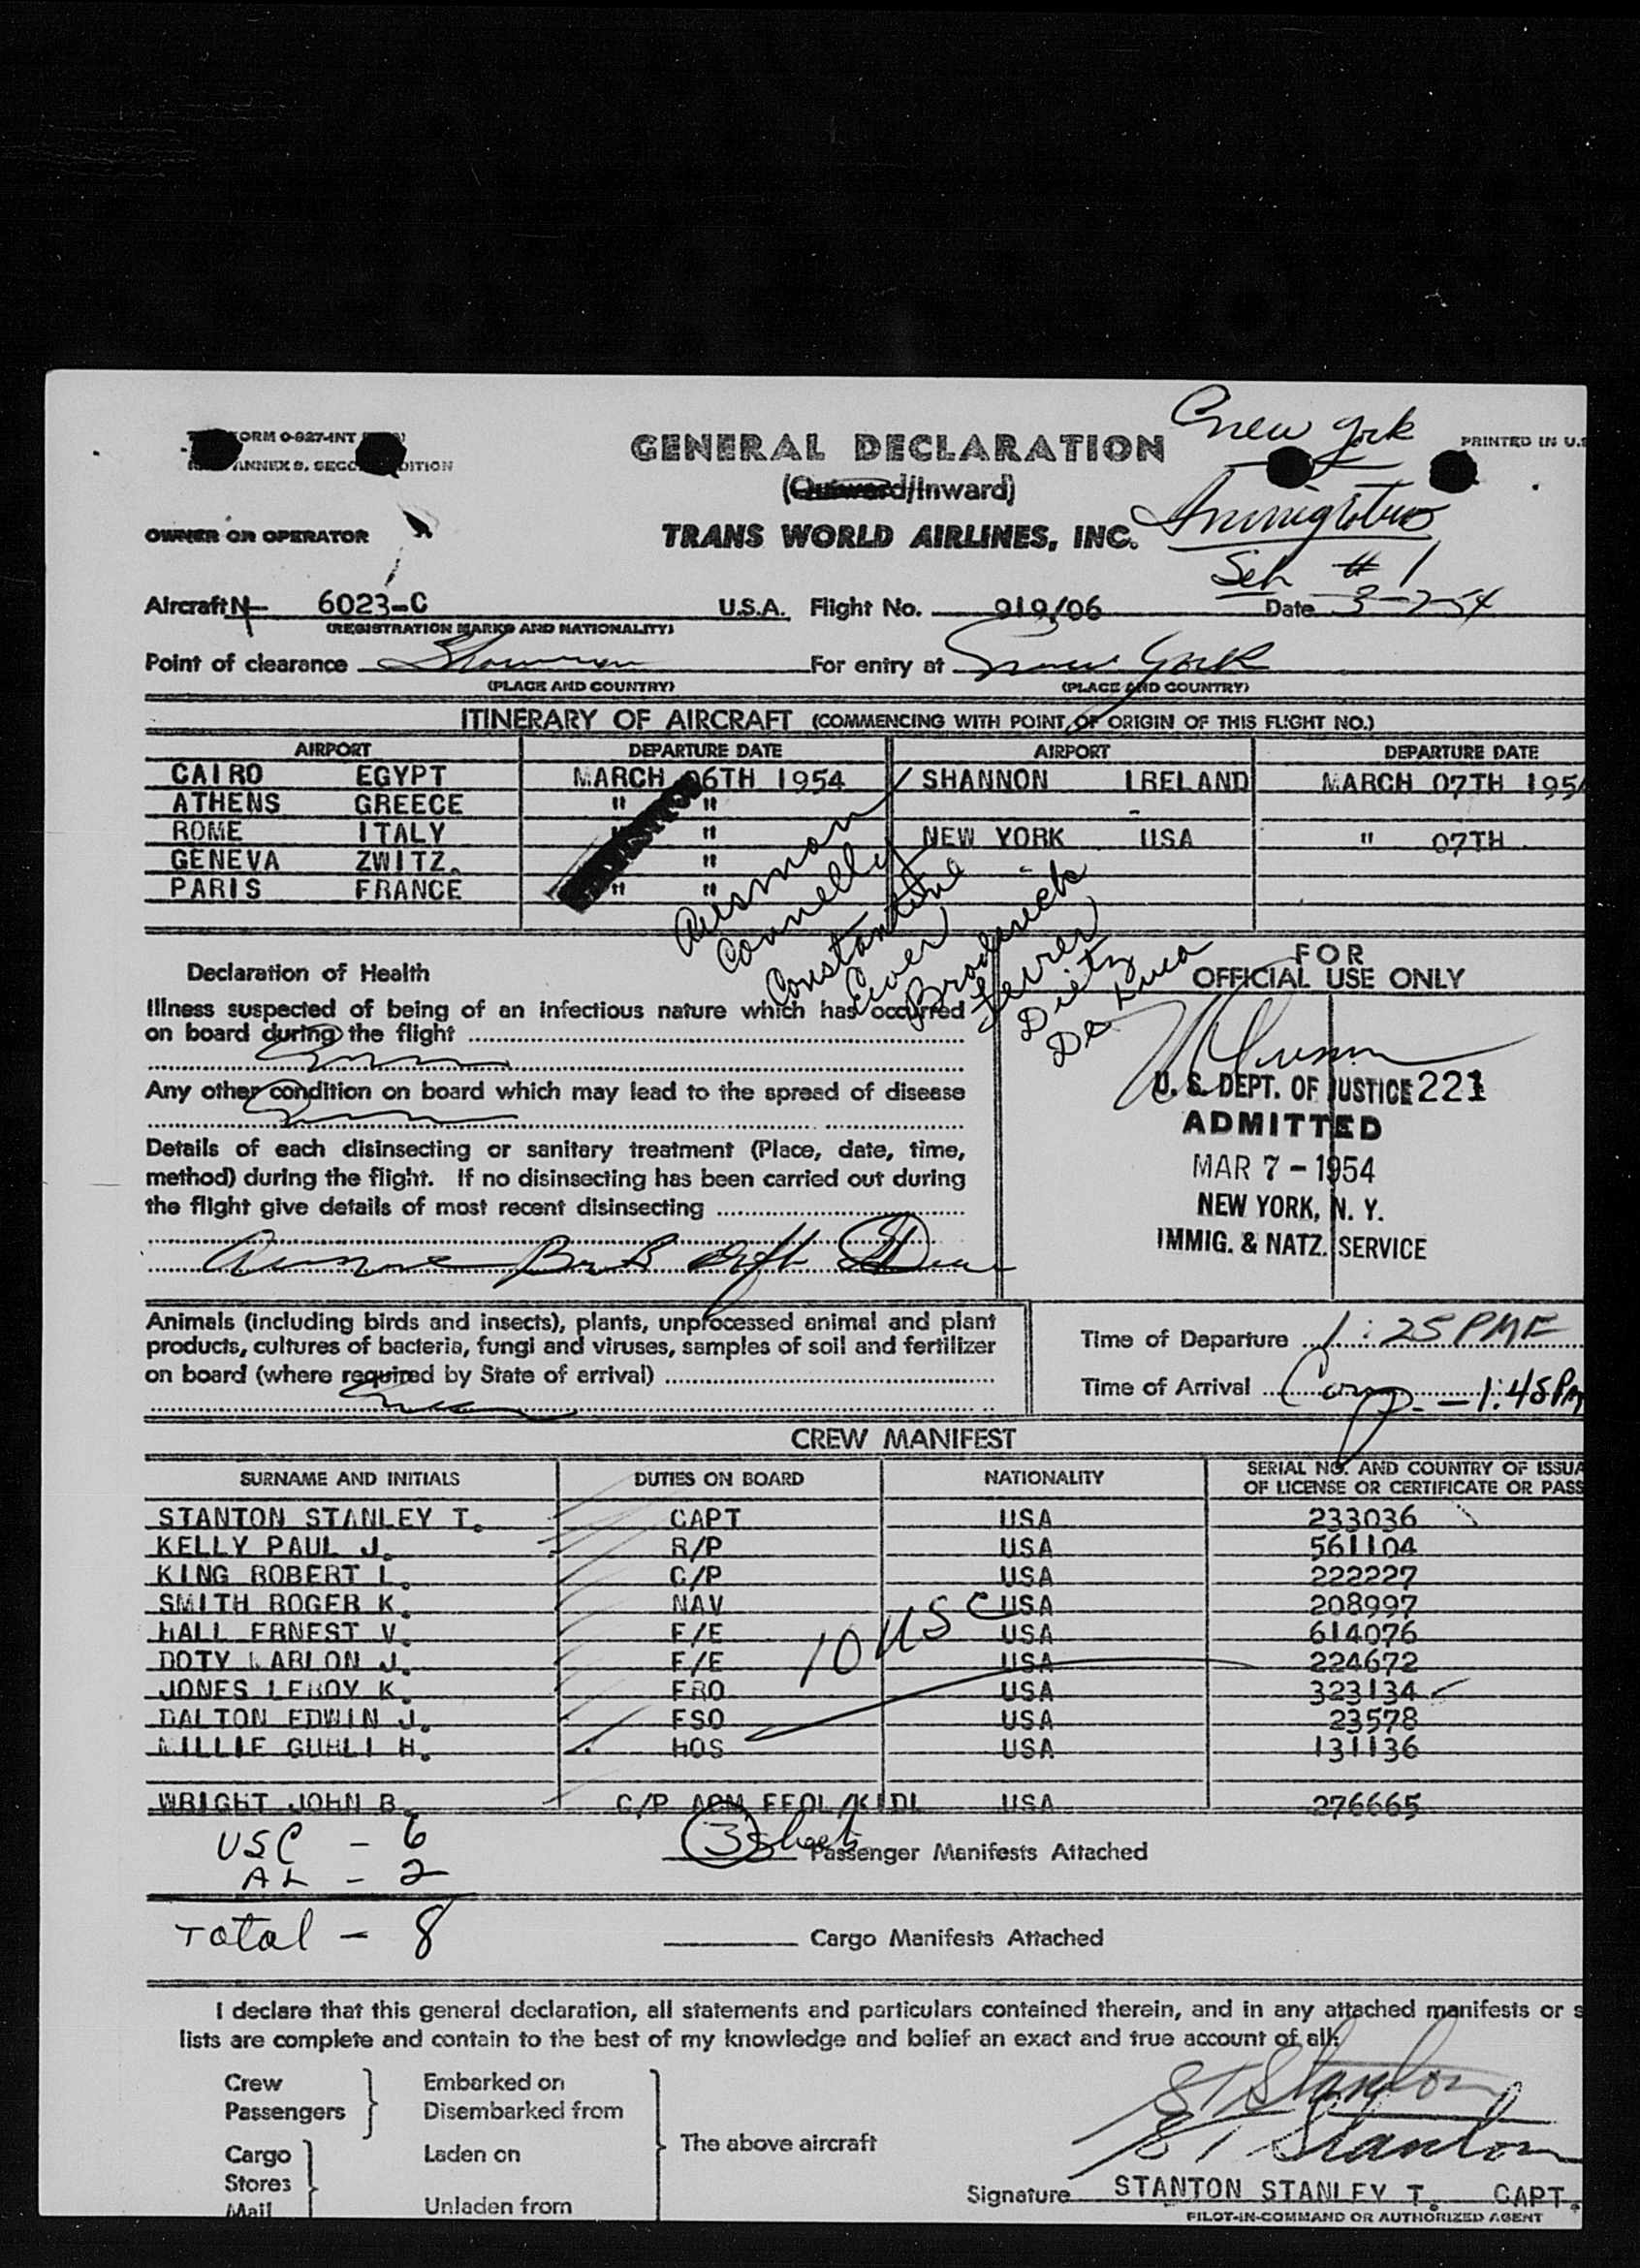 ORM 0-827-INT
ANNEX 9, SECO DITION
GENERAL DECLARATION
(Outward/Inward)
New York
PRINTED IN U.S
OWNER OR OPERATOR
TRANS WORLD AIRLINES, INC.
Immigration
Sch #1
Aircraft N- 6023-C U.S.A. Flight No. 919/06 Date 3-7-54
(REGISTRATION MARKS AND NATIONALITY)
Point of clearance Shannon For entry at New York
(PLACE AND COUNTRY) (PLACE AND COUNTRY)
ITINERARY OF AIRCRAFT (COMMENCING WITH POINT OF ORIGIN OF THIS FLIGHT NO.)
AIRPORT DEPARTURE DATE AIRPORT DEPARTURE DATE
CAIRO EGYPT MARCH 06TH 1954 SHANNON IRELAND MARCH 07TH 1954
ATHENS GREECE " " -
ROME ITALY " " NEW YORK USA " 07TH
GENEVA ZWITZ. "
PARIS FRANCE " "
Ausman
Connelly
Constantine
Cover
Broderick
Ferrer
Dietz
De Luca
Declaration of Health
Illness suspected of being of an infectious nature which has occurred
on board during the flight
Any other condition on board which may lead to the spread of disease
Details of each disinsecting or sanitary treatment (Place, date, time,
method) during the flight. If no disinsecting has been carried out during
the flight give details of most recent disinsecting
FOR
OFFICIAL USE ONLY
U. S. DEPT. OF JUSTICE 221
ADMITTED
MAR 7 - 1954
NEW YORK, N. Y.
IMMIG. & NATZ. SERVICE
Animals (including birds and insects), plants, unprocessed animal and plant
products, cultures of bacteria, fungi and viruses, samples of soil and fertilizer
on board (where required by State of arrival)
Time of Departure 1:25 PME
Time of Arrival 1:45 PM
CREW MANIFEST
SURNAME AND INITIALS DUTIES ON BOARD NATIONALITY SERIAL NO. AND COUNTRY OF ISSUA
OF LICENSE OR CERTIFICATE OR PASS
STANTON STANLEY T. CAPT USA 233036
KELLY PAUL J. R/P USA 561104
KING ROBERT L. C/P USA 222227
SMITH ROGER K. NAV USA 208997
HALL ERNEST V. F/E USA 614076
DOTY MARLON J. F/E USA 224672
JONES LEROY K. FRO USA 323134
DALTON EDWIN J. FSO USA 23578
MILLIE GUHLI H. HOS USA 131136
10 USC
WRIGHT JOHN B. C/P ACM FEOL/KIDL USA 276665
USC - 6
AL - 2
Total - 8
3 Sheets Passenger Manifests Attached
Cargo Manifests Attached
I declare that this general declaration, all statements and particulars contained therein, and in any attached manifests or s
lists are complete and contain to the best of my knowledge and belief an exact and true account of all:
Crew
Passengers
Embarked on
Disembarked from
Cargo
Stores
Mail
Laden on
Unladen from
The above aircraft
S T Stanton
S T Stanton
Signature STANTON STANLEY T. CAPT.
PILOT-IN-COMMAND OR AUTHORIZED AGENT